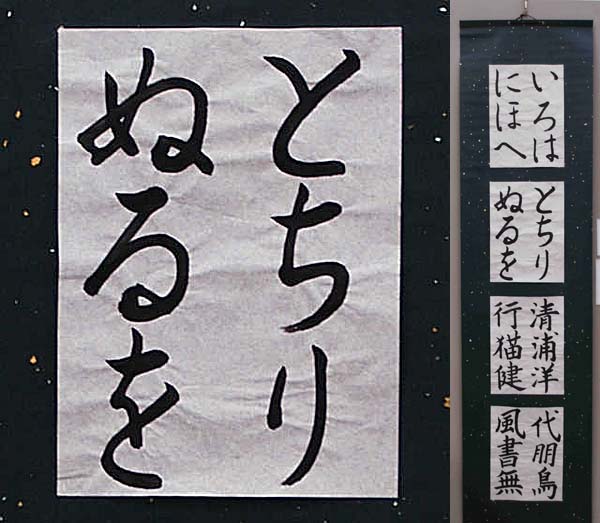 とちり
ぬるを
いろは
にほへ
とちり
ぬるを
清浦洋
行猫健
代朋鳥
風書無